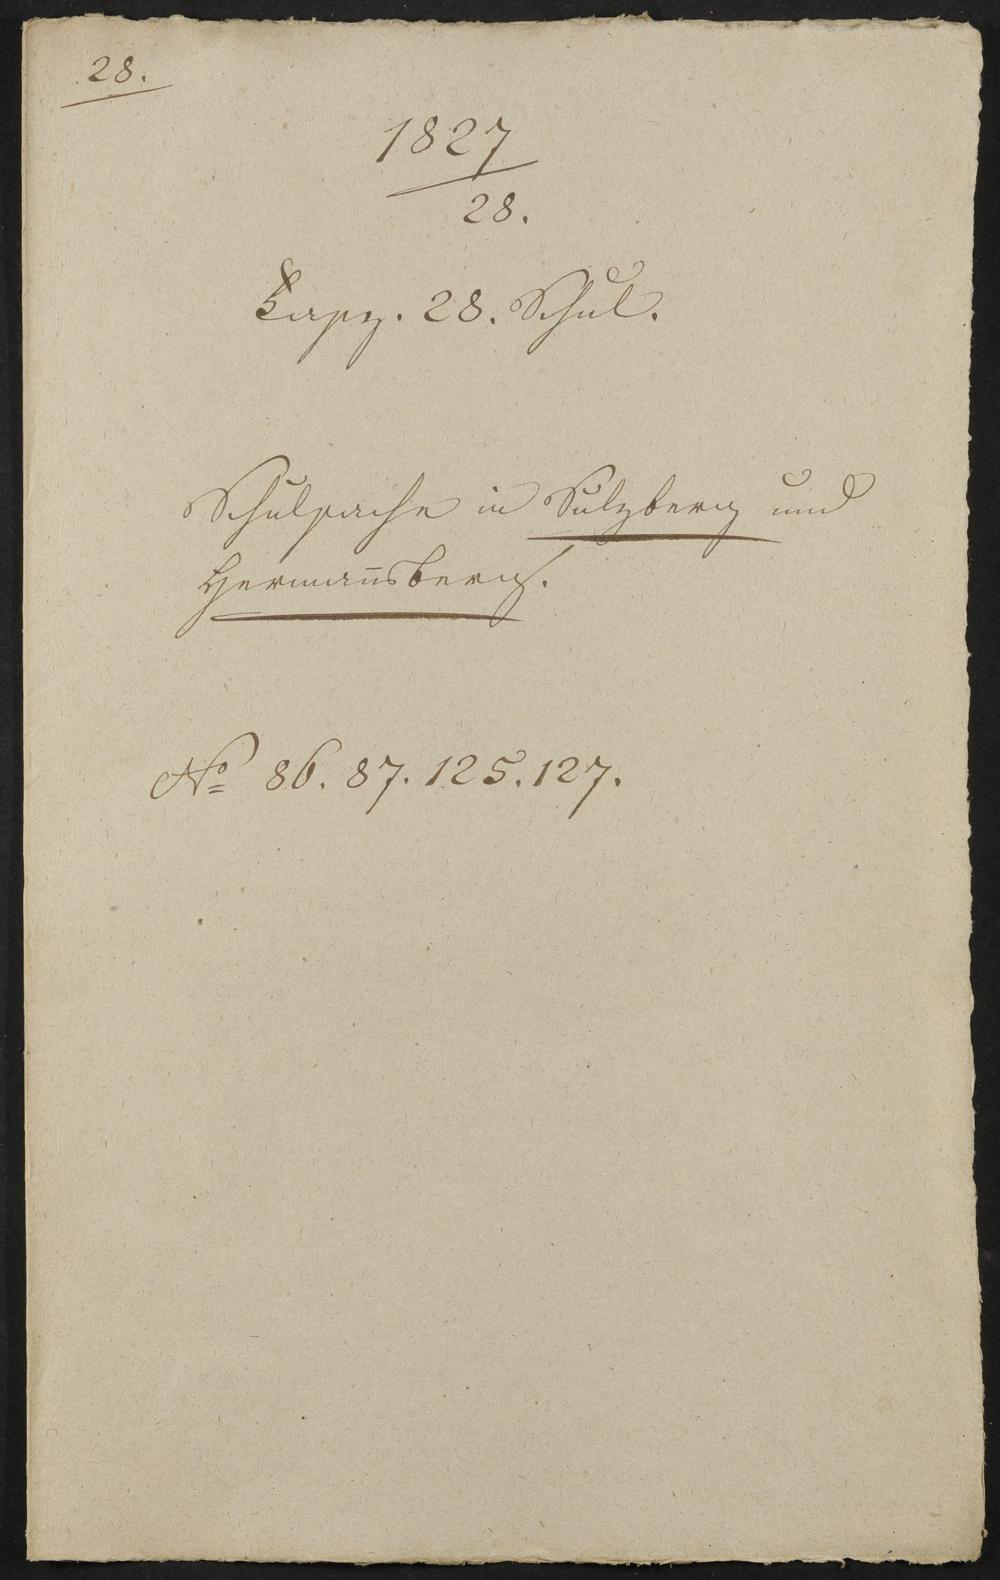 28.
1827
28.
Kapz. 28. Schul.
Schulsache in Sulzberg und
Hermansberg.
No 86. 87. 125. 127.